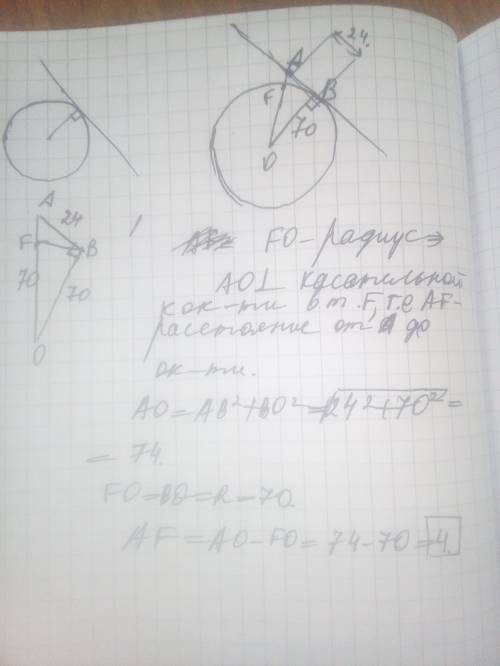 24
A
F
B
70
O
A
24
F
B
70
70
O
FO-радиус⇒
AO⊥ касательной
к ок-ти в т.F, т.е AF-
расстояние от A до
ок-ти.
AO=AB²+BO²=√24²+70²=
=74.
FO=BO=R=70.
AF=AO-FO=74-70=4.